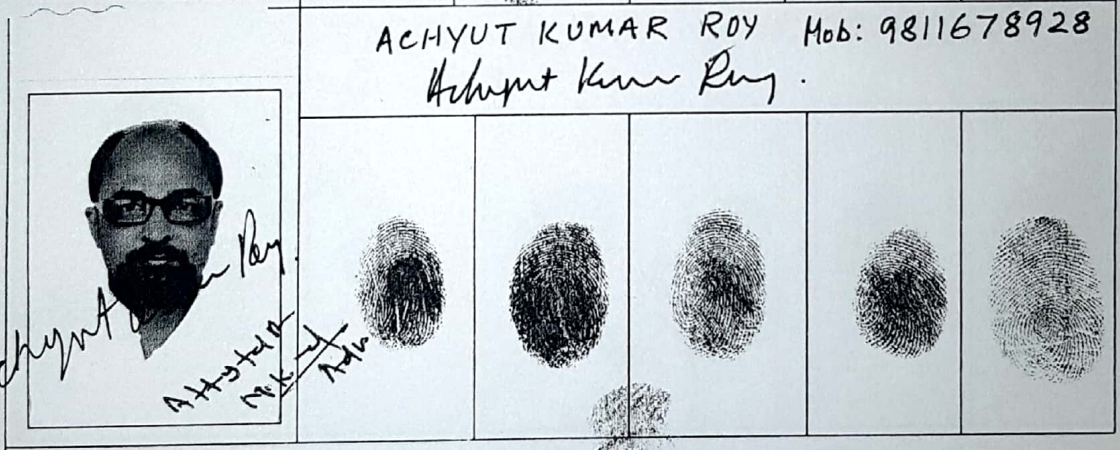 ACHYUT KUMAR ROY Mob: 9811678928
Achyut Kumar Roy.
Achyut Kumar Roy.
Attested
Adv